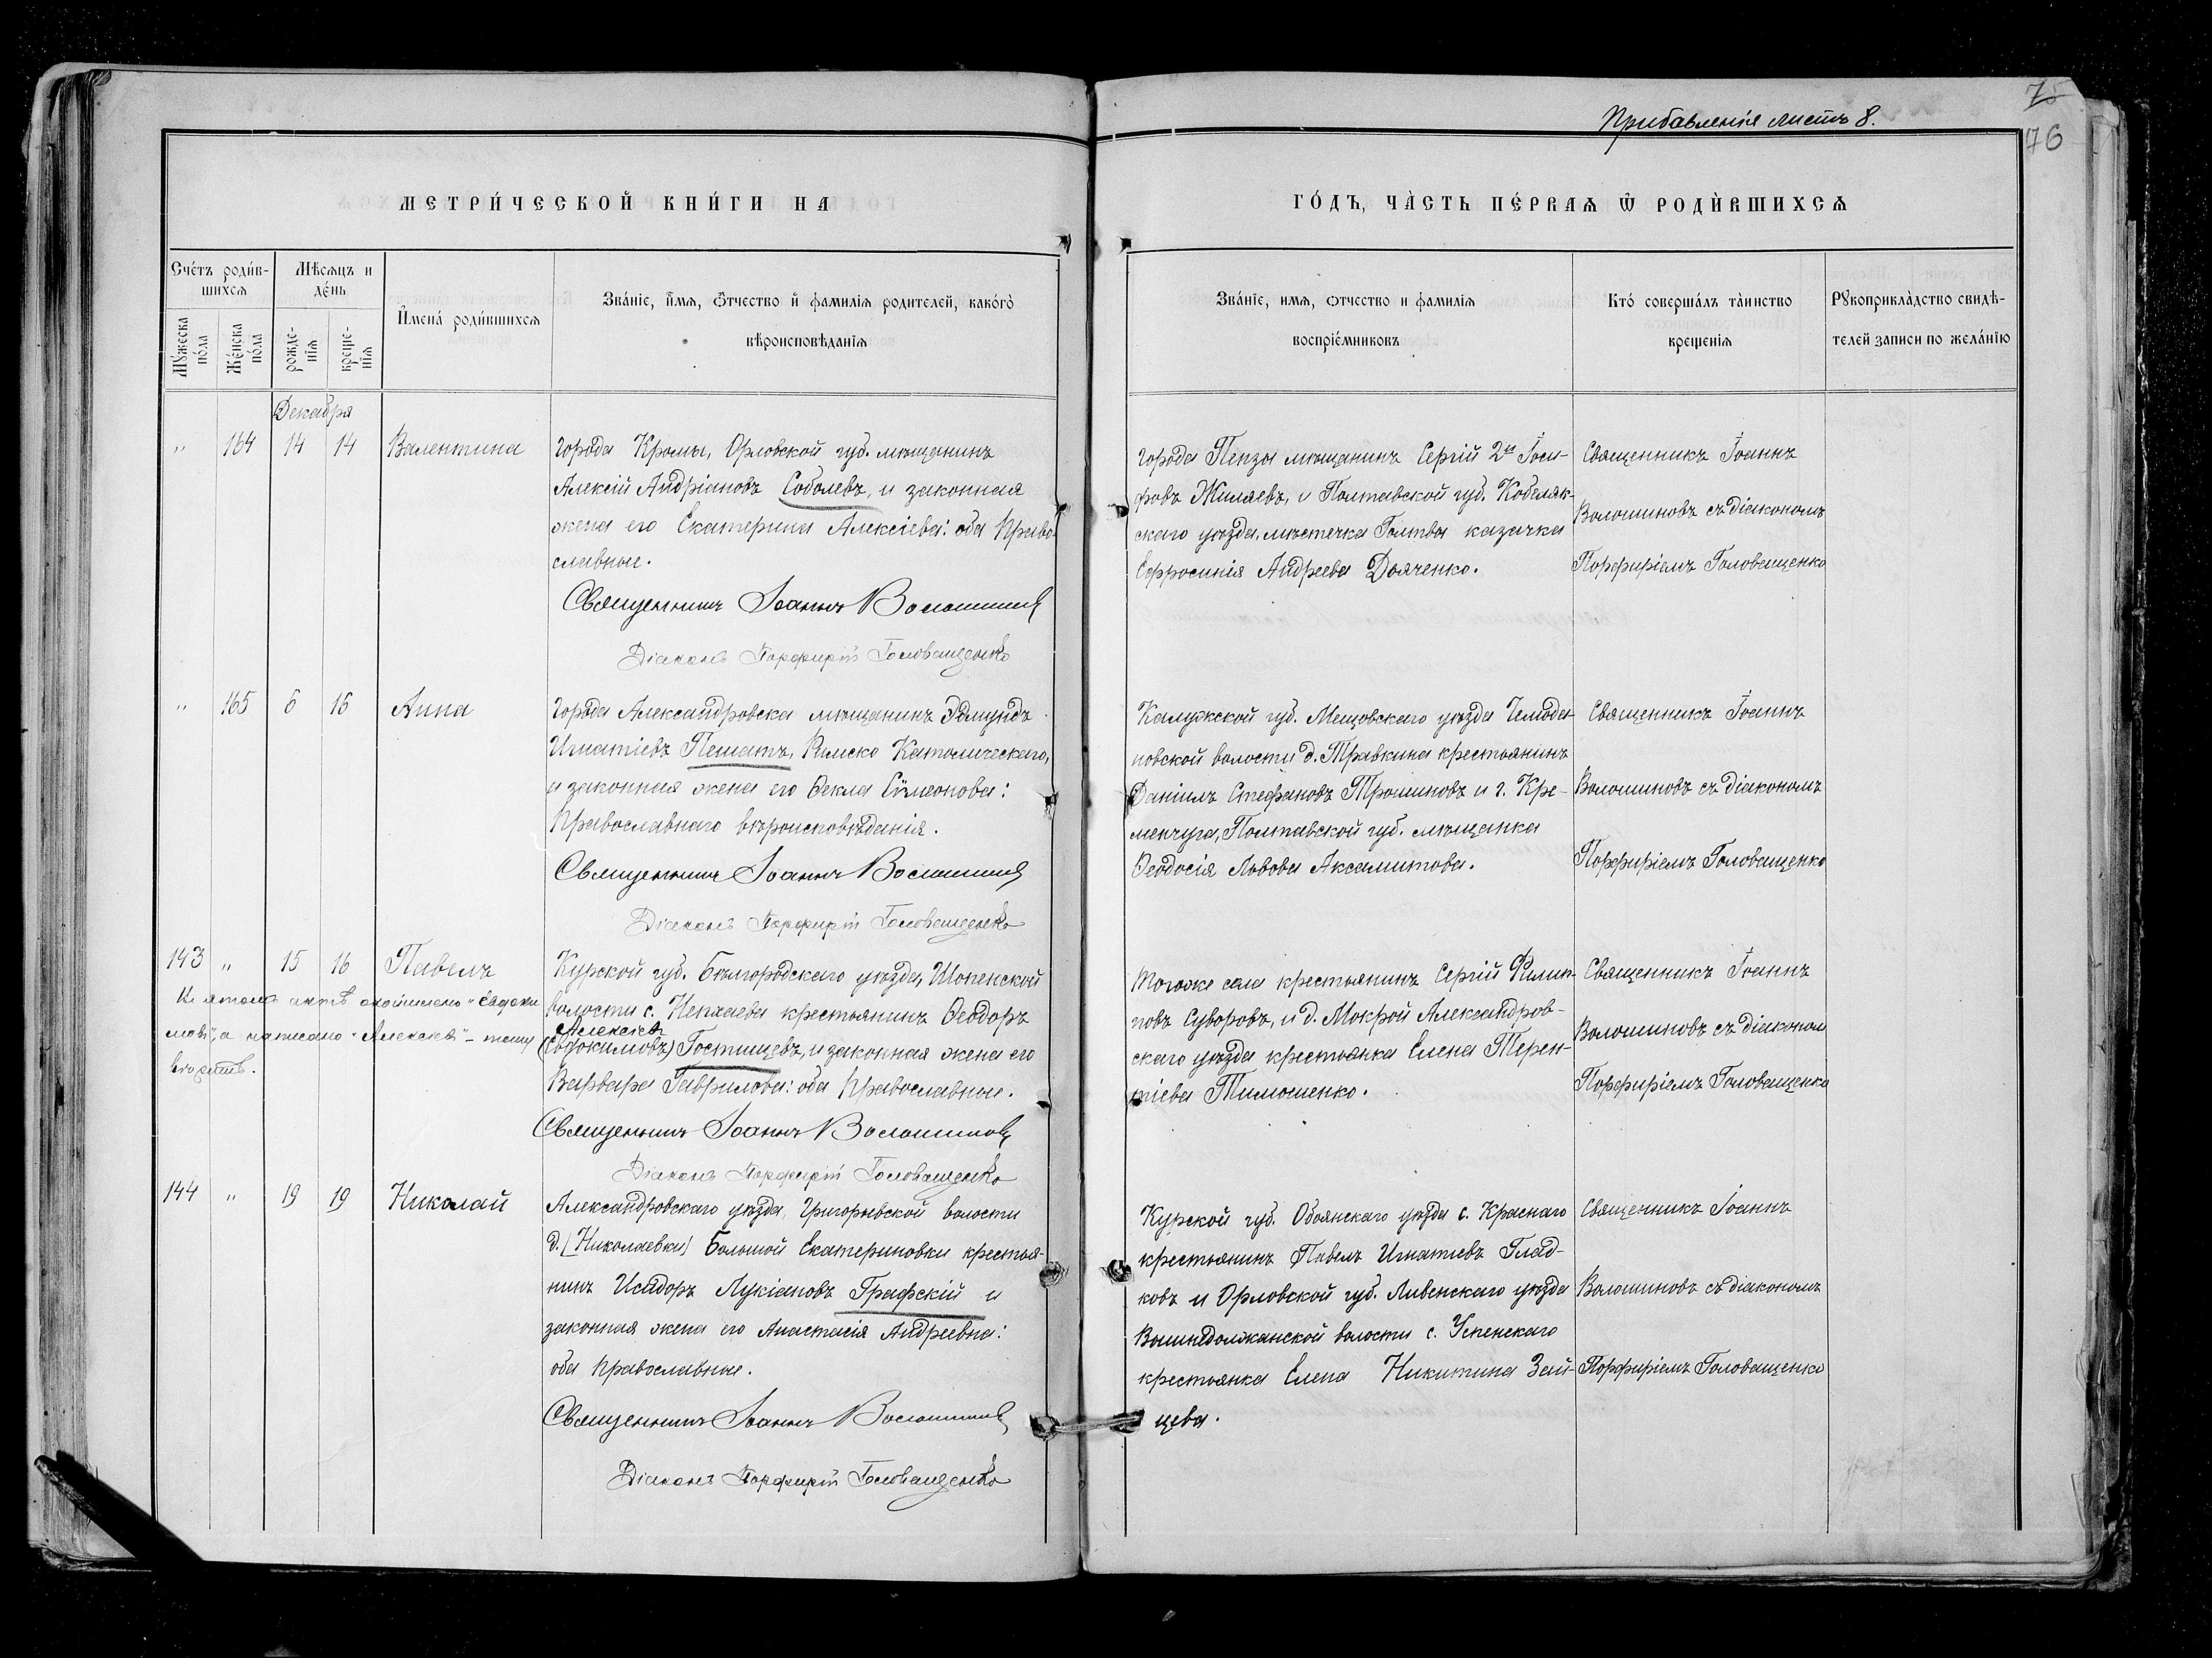 75
Прибавленія листъ 8.
76
МЕТРИ́ЧЕСКОЙ КНИ́ГИ НА
ГО́ДЪ, ЧА̀СТЬ ПЕ́РВАѦ Ѿ РОДЍВШИХСѦ
Сче́тъ роди́в-
шихсѧ
Мꙋ́жеска по́ла
Же́нска по́ла
Мѣ́сѧцъ и
де́нь
рожде-
нїѧ
креще-
нїѧ
И҆мена́ роди́вшихсѧ
Зва́нїе, и҆́мѧ, ѻ҆́тчество и҆ фамилїѧ родителей, како́гѡ
вѣроисповѣ́данїѧ
Зва́нїе, имѧ, отчество и фамилїѧ
воспрїе́мниковъ
Кто́ соверша́лъ та̀инство
креще́нїѧ
Рꙋкоприкла̀дство свидѣ̀-
телей записи по жела́нїю
Декабря
" 164 14 14 Валентина
города Кромы, Орловской губ. мѣщанинъ
Алексій Андріановъ Соболевъ, и законная
жена его Екатерина Алексіева: оба Право-
славные.
Священникъ Іоаннъ Волошиновъ
Діаконъ Порфирій Головащенко
города Пензы мѣщанинъ Сергій 2й Іоси-
фовъ Жиляевъ, и Полтавской губ. Кобеляк-
скаго уѣзда, мѣстечка Голтвы казачка
Ефросинія Андреева Дяченко.
Священникъ Іоаннъ
Волошиновъ съ діакономъ
Порфиріемъ Головащенко
" 165 6 16 Анна
города Александровска мѣщанинъ Эдмундъ
Игнатіевъ Пешатъ, Римско Католическаго,
и законная жена его Ѳекла Сѵмеонова:
Православнаго вѣроисповѣданія.
Священникъ Іоаннъ Волошиновъ
Діаконъ Порфирій Головащенко
Калужской губ. Мещовскаго уѣзда Чемода-
новской волости д. Травкина крестьянинъ
Даніилъ Стефановъ Трошиновъ и г. Кре-
менчуга, Полтавской губ. мѣщанка
Ѳеодосія Львова Аксамитова.
Священникъ Іоаннъ
Волошиновъ съ діакономъ
Порфиріемъ Головащенко
143 " 15 16 Павелъ
Въ этомъ актѣ зачищено "Евдоки
мовъ", а написано "Алексіевъ" – тому
вѣрить.
Курской губ. Бѣлгородскаго уѣзда, Шопенской
волости с. Непхаева крестьянинъ Ѳеодоръ
Алексіевъ
(Евдокимовъ) Гостищевъ, и законная жена его
Варвара Гаврилова: оба Православные.
Священникъ Іоаннъ Волошиновъ
Діаконъ Порфирій Головащенко
Тогоже села крестьянинъ Сергій Филип-
повъ Суворовъ, и д. Мокрой Александров-
скаго уѣзда крестьянка Елена Терен-
тіева Тимошенко.
Священникъ Іоаннъ
Волошиновъ съ діаконом
Порфиріемъ Головащенко
144 " 19 19 Николай
Александровскаго уѣзда, Григорьевской волости
д. (Николаевки) Большой Екатериновки крестья-
нинъ Исидоръ Лукіановъ Графскій и
законная жена его Анастасія Андреевна:
оба Православные.
Священникъ Іоаннъ Волошиновъ
Діаконъ Порфирій Головащенко
Курской губ. Обоянскаго уѣзда с. Краснаго
крестьянинъ Павелъ Игнатіевъ Глад-
ковъ и Орловской губ. Ливенскаго уѣзда
Вышнедолжанской волости с. Успенскаго
крестьянка Елена Никитина Зай-
цева.
Священникъ Іоаннъ
Волошиновъ съ діакономъ
Порфиріемъ Головащенко